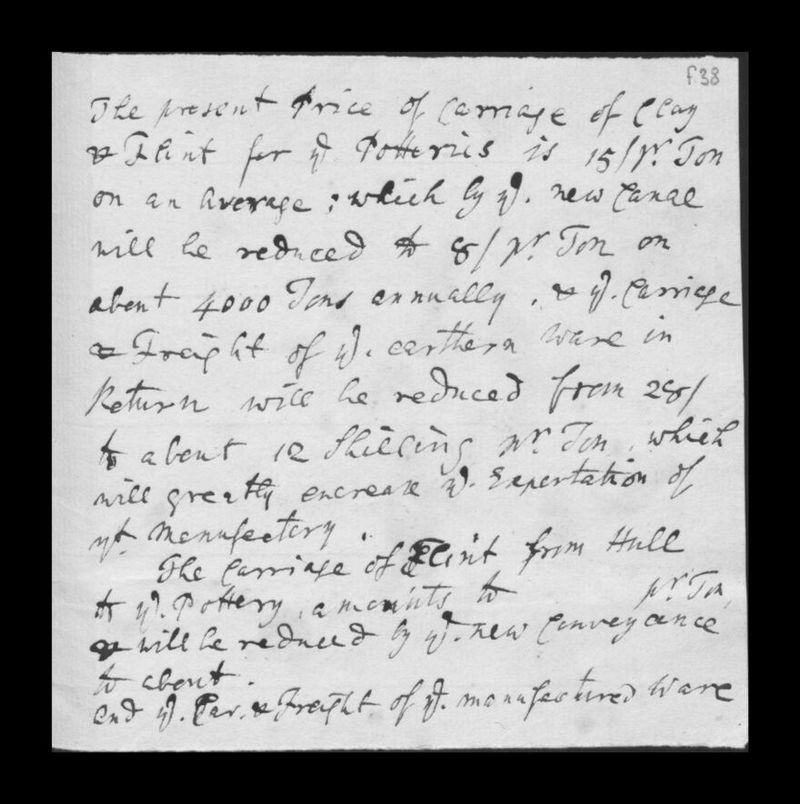 f.38
The present Price of Carriage of Clay
& Flint for ye Potteries is 15/ pr. Ton
on an Average; which by ye. new Canal
will be reduced to 8/ pr. Ton on
about 4000 Tons annually, & ye. Carriage
& Freight of ye. earthern Ware in
Return will be reduced from 28/
to about 12 Shilling pr. Ton, which
will greatly encrease ye. Exportation of
yt. Manufactory.
The Carriage of Flint from Hull
to ye. Pottery, amounts to pr. Ton,
& will be reduced by ye. new Conveyance
to about.
and ye. Car. & Freight of ye. manufactured Ware